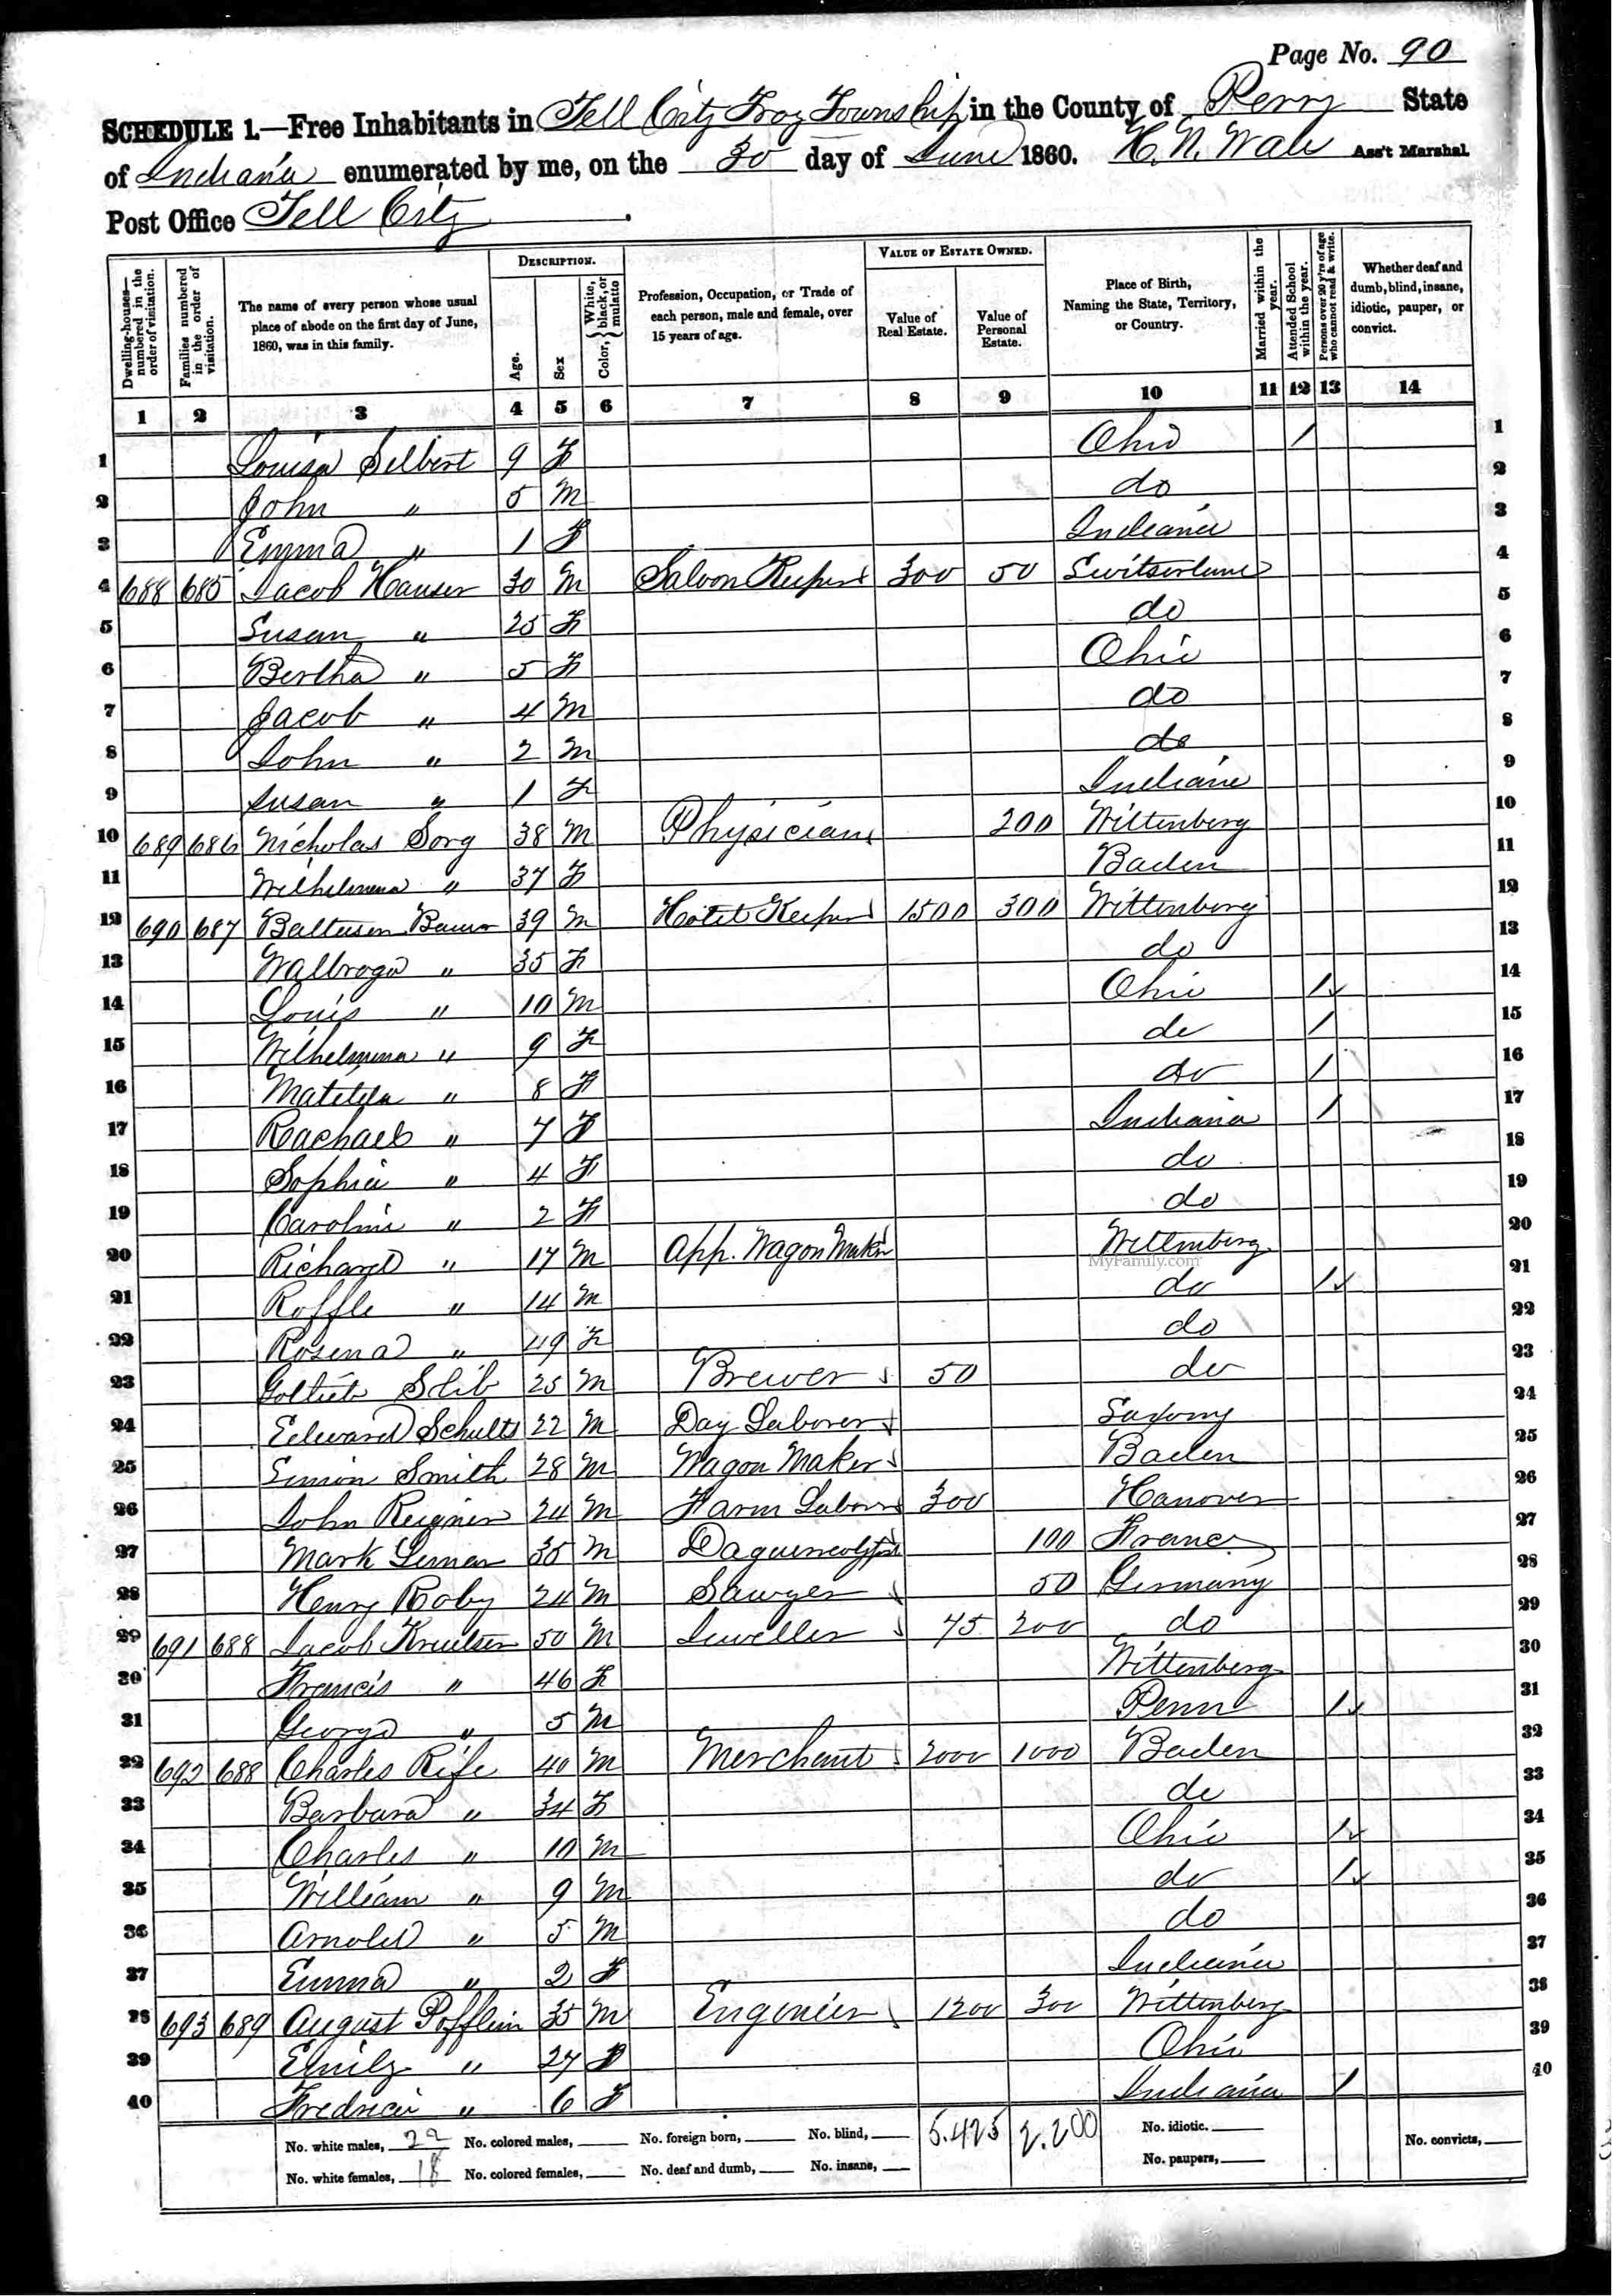 Page No. 90
SCHEDULE 1.—Free Inhabitants in Tell City Troy Township in the County of Perry State
of Indiana enumerated by me, on the 30 day of June 1860. Ass't Marshal.
Post Office Tell City
Dwelling-houses—numbered in the order of visitation.
Families numbered in the order of visitation.
The name of every person whose usual place of abode on the first day of June, 1860, was in this family.
DESCRIPTION.
Age.
Sex
Color, { White, black, or mulatto
Profession, Occupation, or Trade of each person, male and female, over 15 years of age.
VALUE OF ESTATE OWNED.
Value of Real Estate.
Value of Personal Estate.
Place of Birth, Naming the State, Territory, or Country.
Married within the year.
Attended School within the year.
Persons over 20 y'rs of age who cannot read & write.
Whether deaf and dumb, blind, insane, idiotic, pauper, or convict.
1 2 3 4 5 6 7 8 9 10 11 12 13 14
1 Louisa Selbert 9 F Ohio / 1
2 John " 5 M do 2
3 Emma " 1 F Indiana 3
4 688 685 Jacob Hauser 30 M Saloon Keeper 300 50 4
5 Susan " 25 F do 5
6 Bertha " 5 F Ohio 6
7 Jacob " 4 M do 7
8 John " 2 M do 8
9 Susan " 1 F Indiana 9
10 689 686 Nicholas Sorg 38 M Physician 200 Wittenberg 10
11 Wilhelmena " 37 F Baden 11
12 690 687 39 M Hotel Keeper 1500 300 Wittenberg 12
13 Walbroga " 35 F do 13
14 Louis " 10 M Ohio / 14
15 Wilhelmina " 9 F do / 15
16 Matilda " 8 F do / 16
17 Rachael " 7 F Indiana / 17
18 Sophia " 4 F do 18
19 Caroline " 2 F do 19
20 Richard " 17 M App. Wagon Maker Wittenberg 20
MyFamily.com
21 Roffle " 14 M do / 21
22 Rosena " 49 F do 22
23 Gottlieb 25 M Brewer 50 do 23
24 Edward Schults 22 M Day Laborer Saxony 24
25 Simon Smith 28 M Wagon Maker Baden 25
26 John 24 M Farm Laborer 300 Hanover 26
27 Mark 35 M 100 France 27
28 Henry Roby 24 M Sawyer 50 Germany 28
29 691 688 Jacob 50 M Jeweller 75 200 do 29
30 Francis " 46 F Wittenberg 30
31 George " 5 M Penn / 31
32 692 688 Charles Rife 40 M Merchant 2000 1000 Baden 32
33 Barbara " 34 F do 33
34 Charles " 10 M Ohio / 34
35 William " 9 M do / 35
36 Arnold " 5 M do 36
37 Emma " 2 F Indiana 37
38 693 689 August Pofflin 35 M Engenier 1200 300 Wittenberg 38
39 Emily " 27 F Ohio 39
40 " 6 F Indiana / 40
No. white males, 22 No. colored males, No. foreign born, No. blind, 5.425 2.200 No. idiotic. No. convicts,
No. white females, 18 No. colored females, No. deaf and dumb, No. insane, No. paupers,